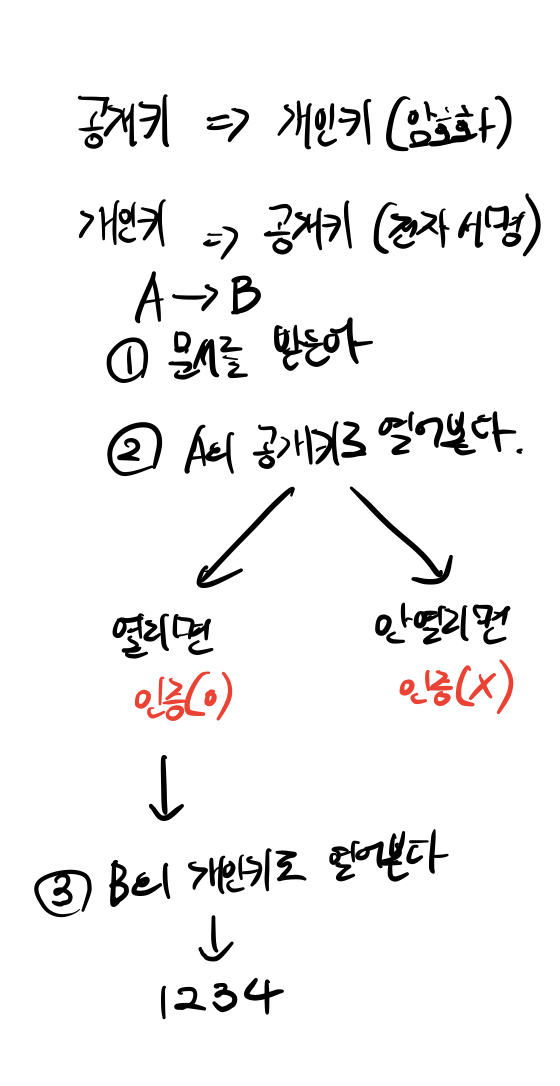 공개키 => 개인키 (암호화)
개인키 => 공개키 (전자 서명)
A → B
① 문서를 받는다
② A의 공개키로 열어본다.
열리면 안열리면
인증(O) 인증(X)
③ B의 개인키로 열어본다
1234